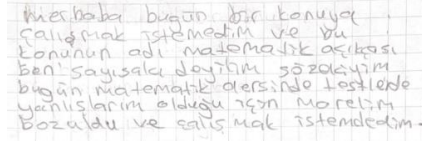 merhaba bugün bir konuya
çalışmak istemedim ve bu
konunun adı matematik açıkçası
ben sayısalcı değilim sözelciyim
bugün matematik dersinde testlerde
yanlışlarım olduğu için morelim
bozuldu ve çalış mak istemdedim.